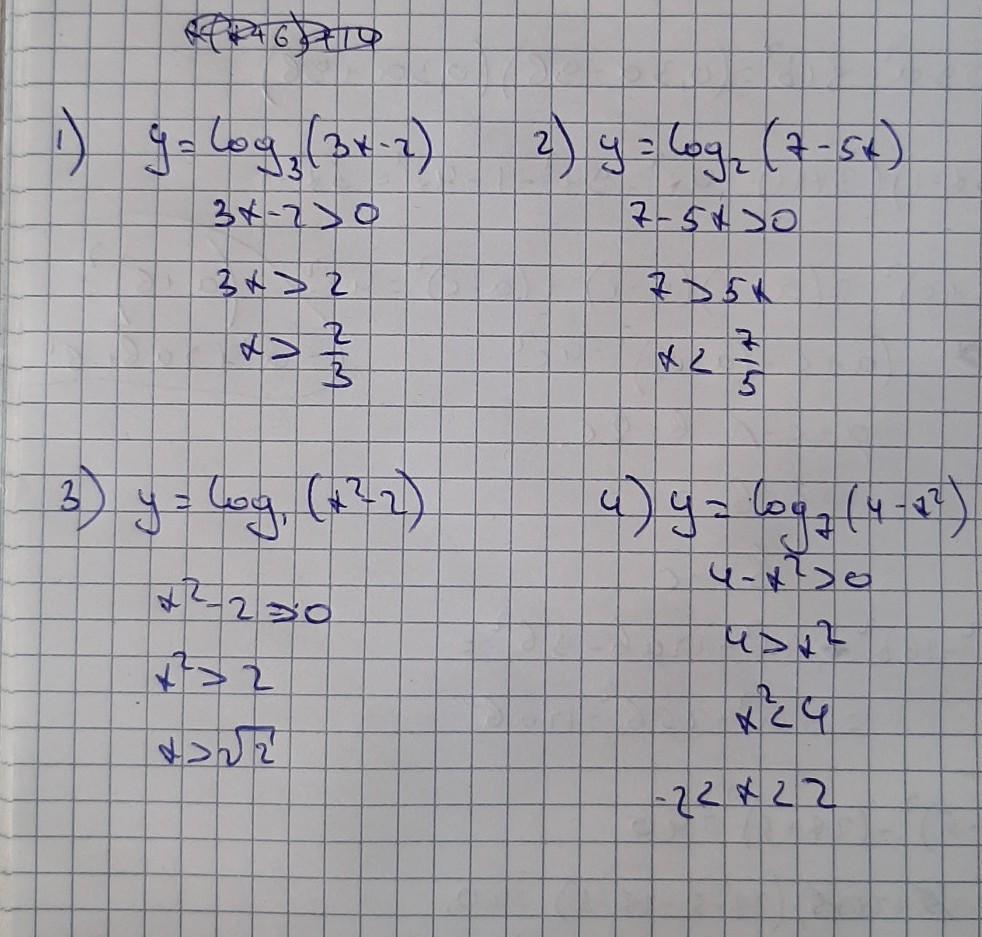 1) y = log₃(3x-2)
3x-2>0
3x > 2
x > 2/3
2) y = log₂(7-5x)
7-5x>0
7>5x
x < 7/5
3) y = log₁(x²-2)
x²-2>0
x²> 2
x>√2
4) y = log₇(4-x²)
4-x²>0
4>x²
x²<4
-2< x < 2